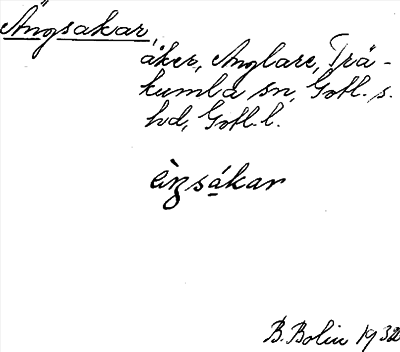 Ängsakar,
åker, Anglare, Trä-
kumla sn, Gotl. s.
hd, Gotl. l.
B. Bolin 1932